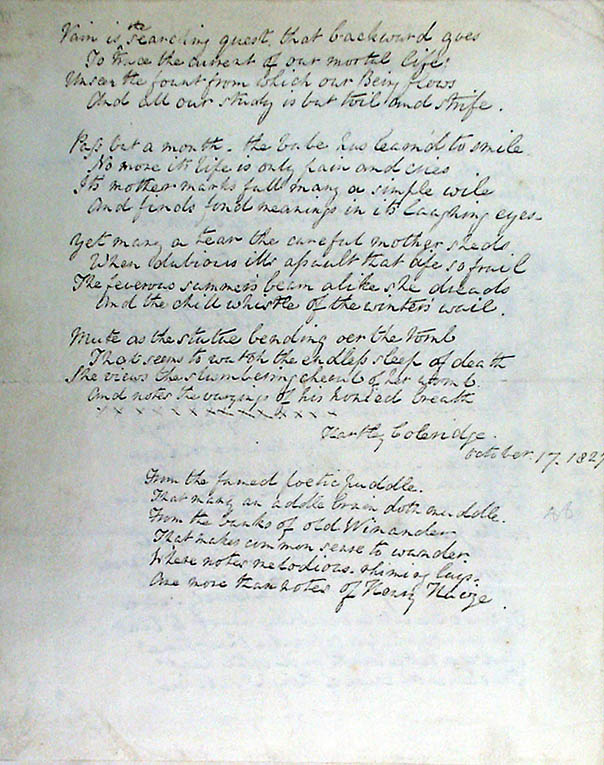 Vain is the searching quest, that backward goes
To trace the current of our mortal life:
Unseen the fount from which our Being flows
And all our study is but toil and strife.
Pass but a month - the babe has learn'd to smile
No more its life is only pain and cries
Its mother marks full many a simple wile
And finds fond meanings in its laughing eyes
Yet many a tear the careful mother sheds
When dubious ills assault that life so frail
The feverous summer's beam alike she dreads
And the chill whistle of the winter's wail.
Mute as the statue bending oer the tomb
That seems to watch the endless sleep of death
She views the slumbering cherub of her womb
And notes the varyings of his honied breath
x x x x x x x x x x x x x
Hartley Coleridge.
October 17. 182
From the famed poetic puddle.
That many an addle brain doth muddle.
From the banks of old Winander
That makes common sense to wander
Where notes melodious. rhiming lays.
Are more than notes of Henry